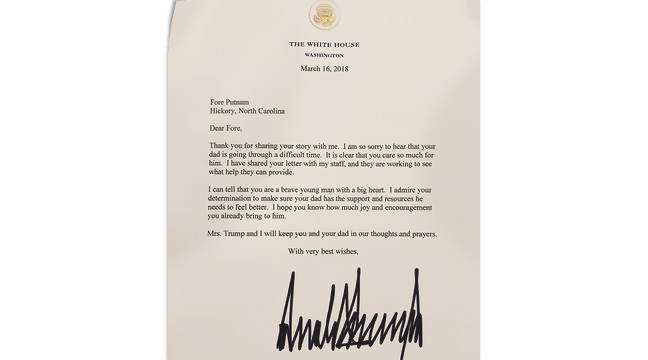 THE WHITE HOUSE
WASHINGTON
March 16, 2018
Fore Putnam
Hickory, North Carolina
Dear Fore,
Thank you for sharing your story with me. I am so sorry to hear that your
dad is going through a difficult time. It is clear that you care so much for
him. I have shared your letter with my staff, and they are working to see
what help they can provide.
I can tell that you are a brave young man with a big heart. I admire your
determination to make sure your dad has the support and resources he
needs to feel better. I hope you know how much joy and encouragement
you already bring to him.
Mrs. Trump and I will keep you and your dad in our thoughts and prayers.
With very best wishes,